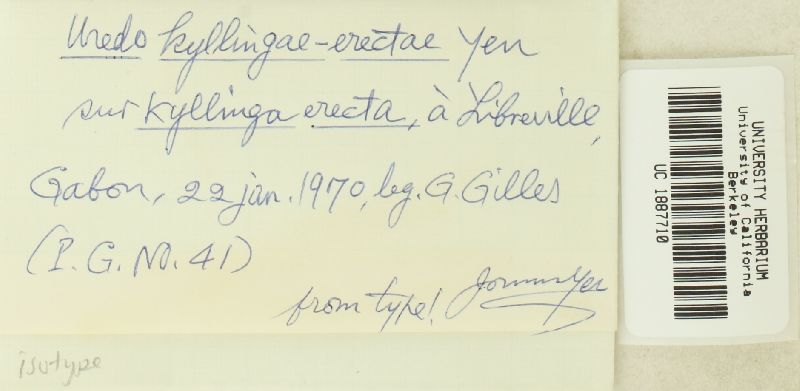 Uredo kyllingae-erectae Yen
sur Kyllinga erecta, à Libreville,
Gabon, 22 jan. 1970, leg. G. Gilles
(P. G. No. 41)
from type!
isotype
UNIVERSITY HERBARIUM
University of California
Berkeley
UC 1887710